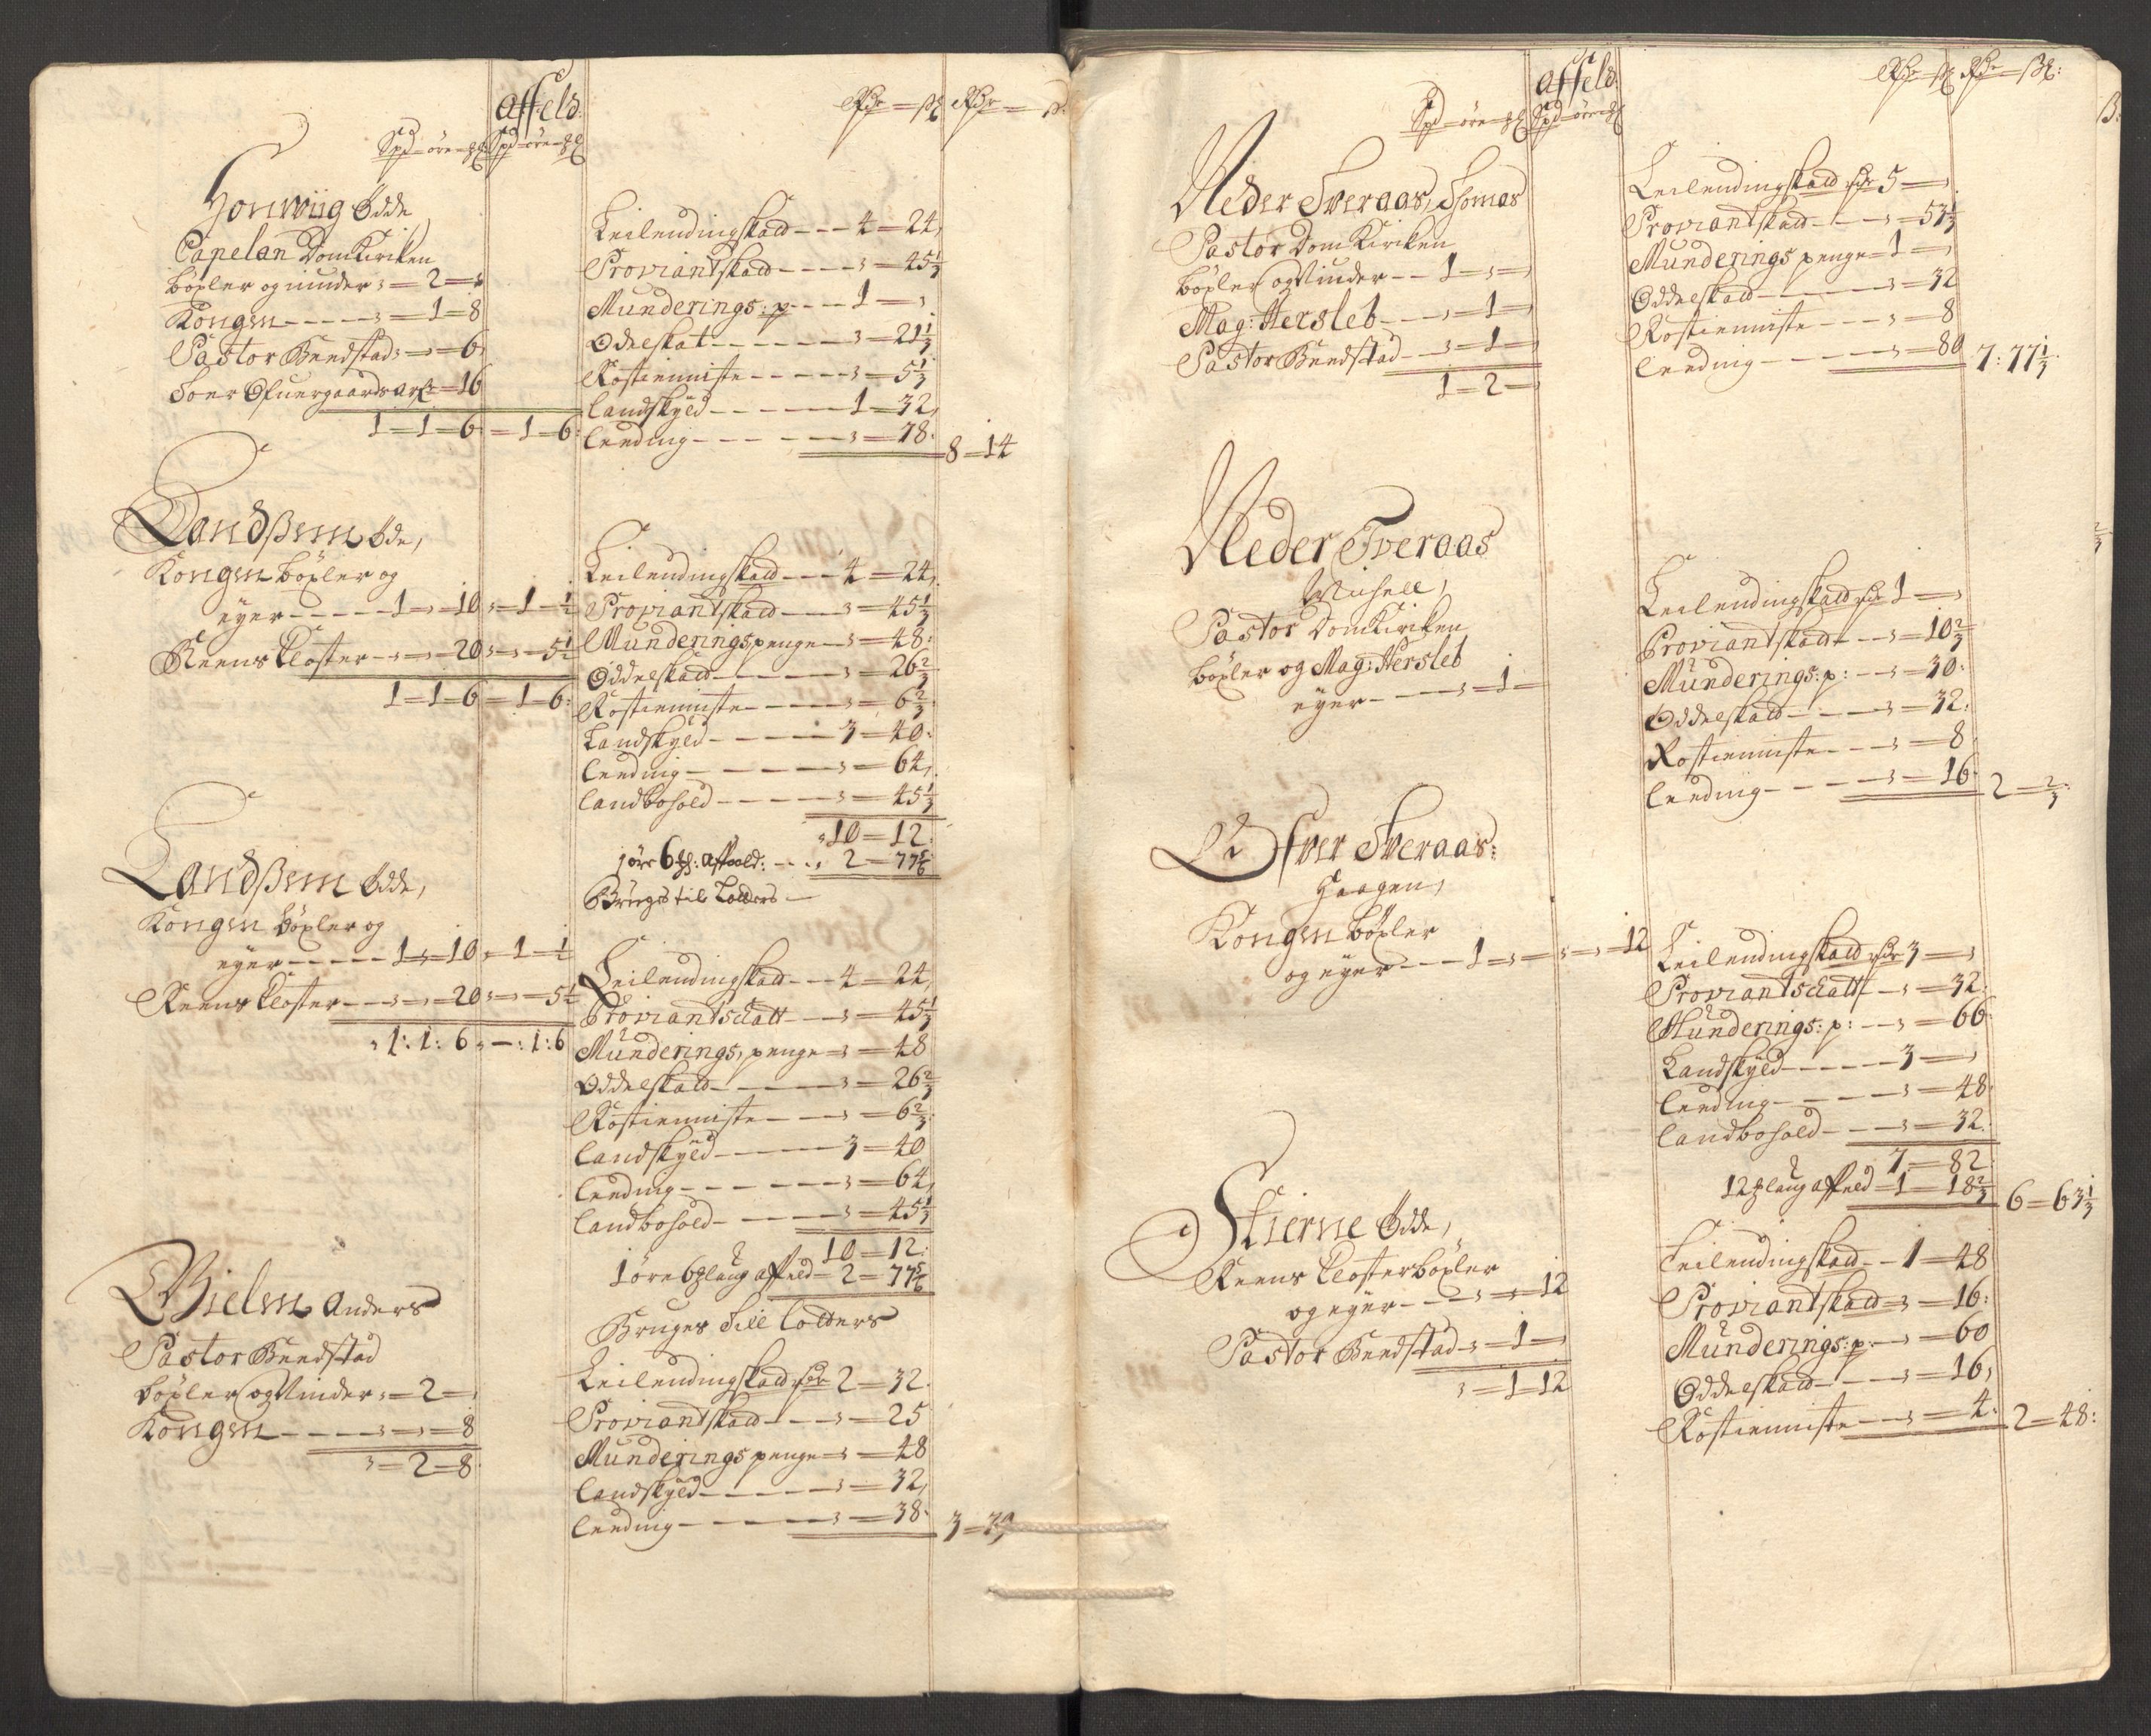 affeld:
Spd = öre = ℔ Spd = öre = ℔
Rdr = ß Rdr = ß
Honwiig Ødde
Capelan DomKirken
böxler og minder = 2 =
Kongen = 1 = 8
Pastor Bredstad = 6
Soer Ofuergaards arf = 16
1 = 1 = 6 = 1 = 6
Leilendingskatd 4 = 24
Proviantskatd = 45 1/3
Munderings: p 1 =
Odelskat = 21 1/3
Rostienniste = 5 1/3
Landskyld 1 = 32
Leeding = 78
8 = 14
Landßem øde,
Kongen böxler og
eyer 1 = 10 = 1 = 1/2
Reens Closter = 20 = 5 1/2
1 = 1 = 6 = 1 = 6
Leilendingskatd 4 = 24
Proviantskatd = 45 1/3
Munderingspenge = 48
Oddelskatd = 26 2/3
Rostienniste = 6 2/3
Landskyld 3 = 40
Leeding = 64
Landbohold = 45 1/3
10 = 12
1 öre 6 ℔: affeld: 2 = 77 5/6
Bruges til Lotters
Landßem Ødde,
Kongen böxler og
eyer 1 = 10 = 1 = 1/2
Reens Closter = 20 = 5 1/2
1: 1: 6 = : 1: 6
Leilendingskatd 4 = 24
Proviantschatt = 45 1/3
Munderings, penge = 48
Oddelskatd = 26 2/3
Rostienniste = 6 2/3
Landskyld 3 = 40
Leeding = 64
Landbohold = 45 1/3
10 = 12
1 öre 6 ℔laug affeld = 2 = 77 5/6
Bruges Till Lotters
Bielen Anders
Pastor Bredstad
böxler og Minder = 2 =
Kongen = 8
= 2 = 8
Leilendingskatd Rdr 2 = 32
Proviantskatd = 25
Munderings penge = 48
Landskyld = 32
Leeding = 38
3 = 79
affeld
Spd = öre = ℔ Spd = öre = ℔
Rdr = ß Rdr = ß:
Neder Tveraas, Thomas
Pastor DomKirken
böxler og Minder 1 =
Mag: Hersleb = 1 =
Pastor Bredstad = 1 =
1 = 2 =
Leilendingskatd Rdr 5 =
Proviantskatd = 53 1/3
Munderings penge = 1 =
Oddelskatd = 32
Rostienniste = 8
Leeding = 80
7: 77 1/3
Neder Tveraas
Michell,
Pastor DomKirken
böxler og Mag: Hersleb
eyer = 1 =
Leilendingskatd Rdr 1 =
Proviantskatd = 10 2/3
Munderings: p: = 30
Oddelskatd = 32
Rostienniste = 8
Leeding = 16
2 = 2/3
Øfver Tveraas:
Haagen,
Kongen böxler
og eyer 1 = = 12
Leilendingskatd Rdr 3 =
Proviantschatt = 32
Munderings: p: = 66
Landskyld 3 =
Leeding = 48
Landbohold = 32
7 = 82
12 ℔laug affeld = 1 = 18 2/3
6 = 63 1/3
Stierne Ødde,
Reens Closter böxler
og eyer = 12
Pastor Bredstad = 1 =
= 1 = 12
Leilendingskatd 1 = 48
Proviantskatd = 16
Munderings: p = 60
Oddelskatd = 16
Rostienniste = 4
2 = 48